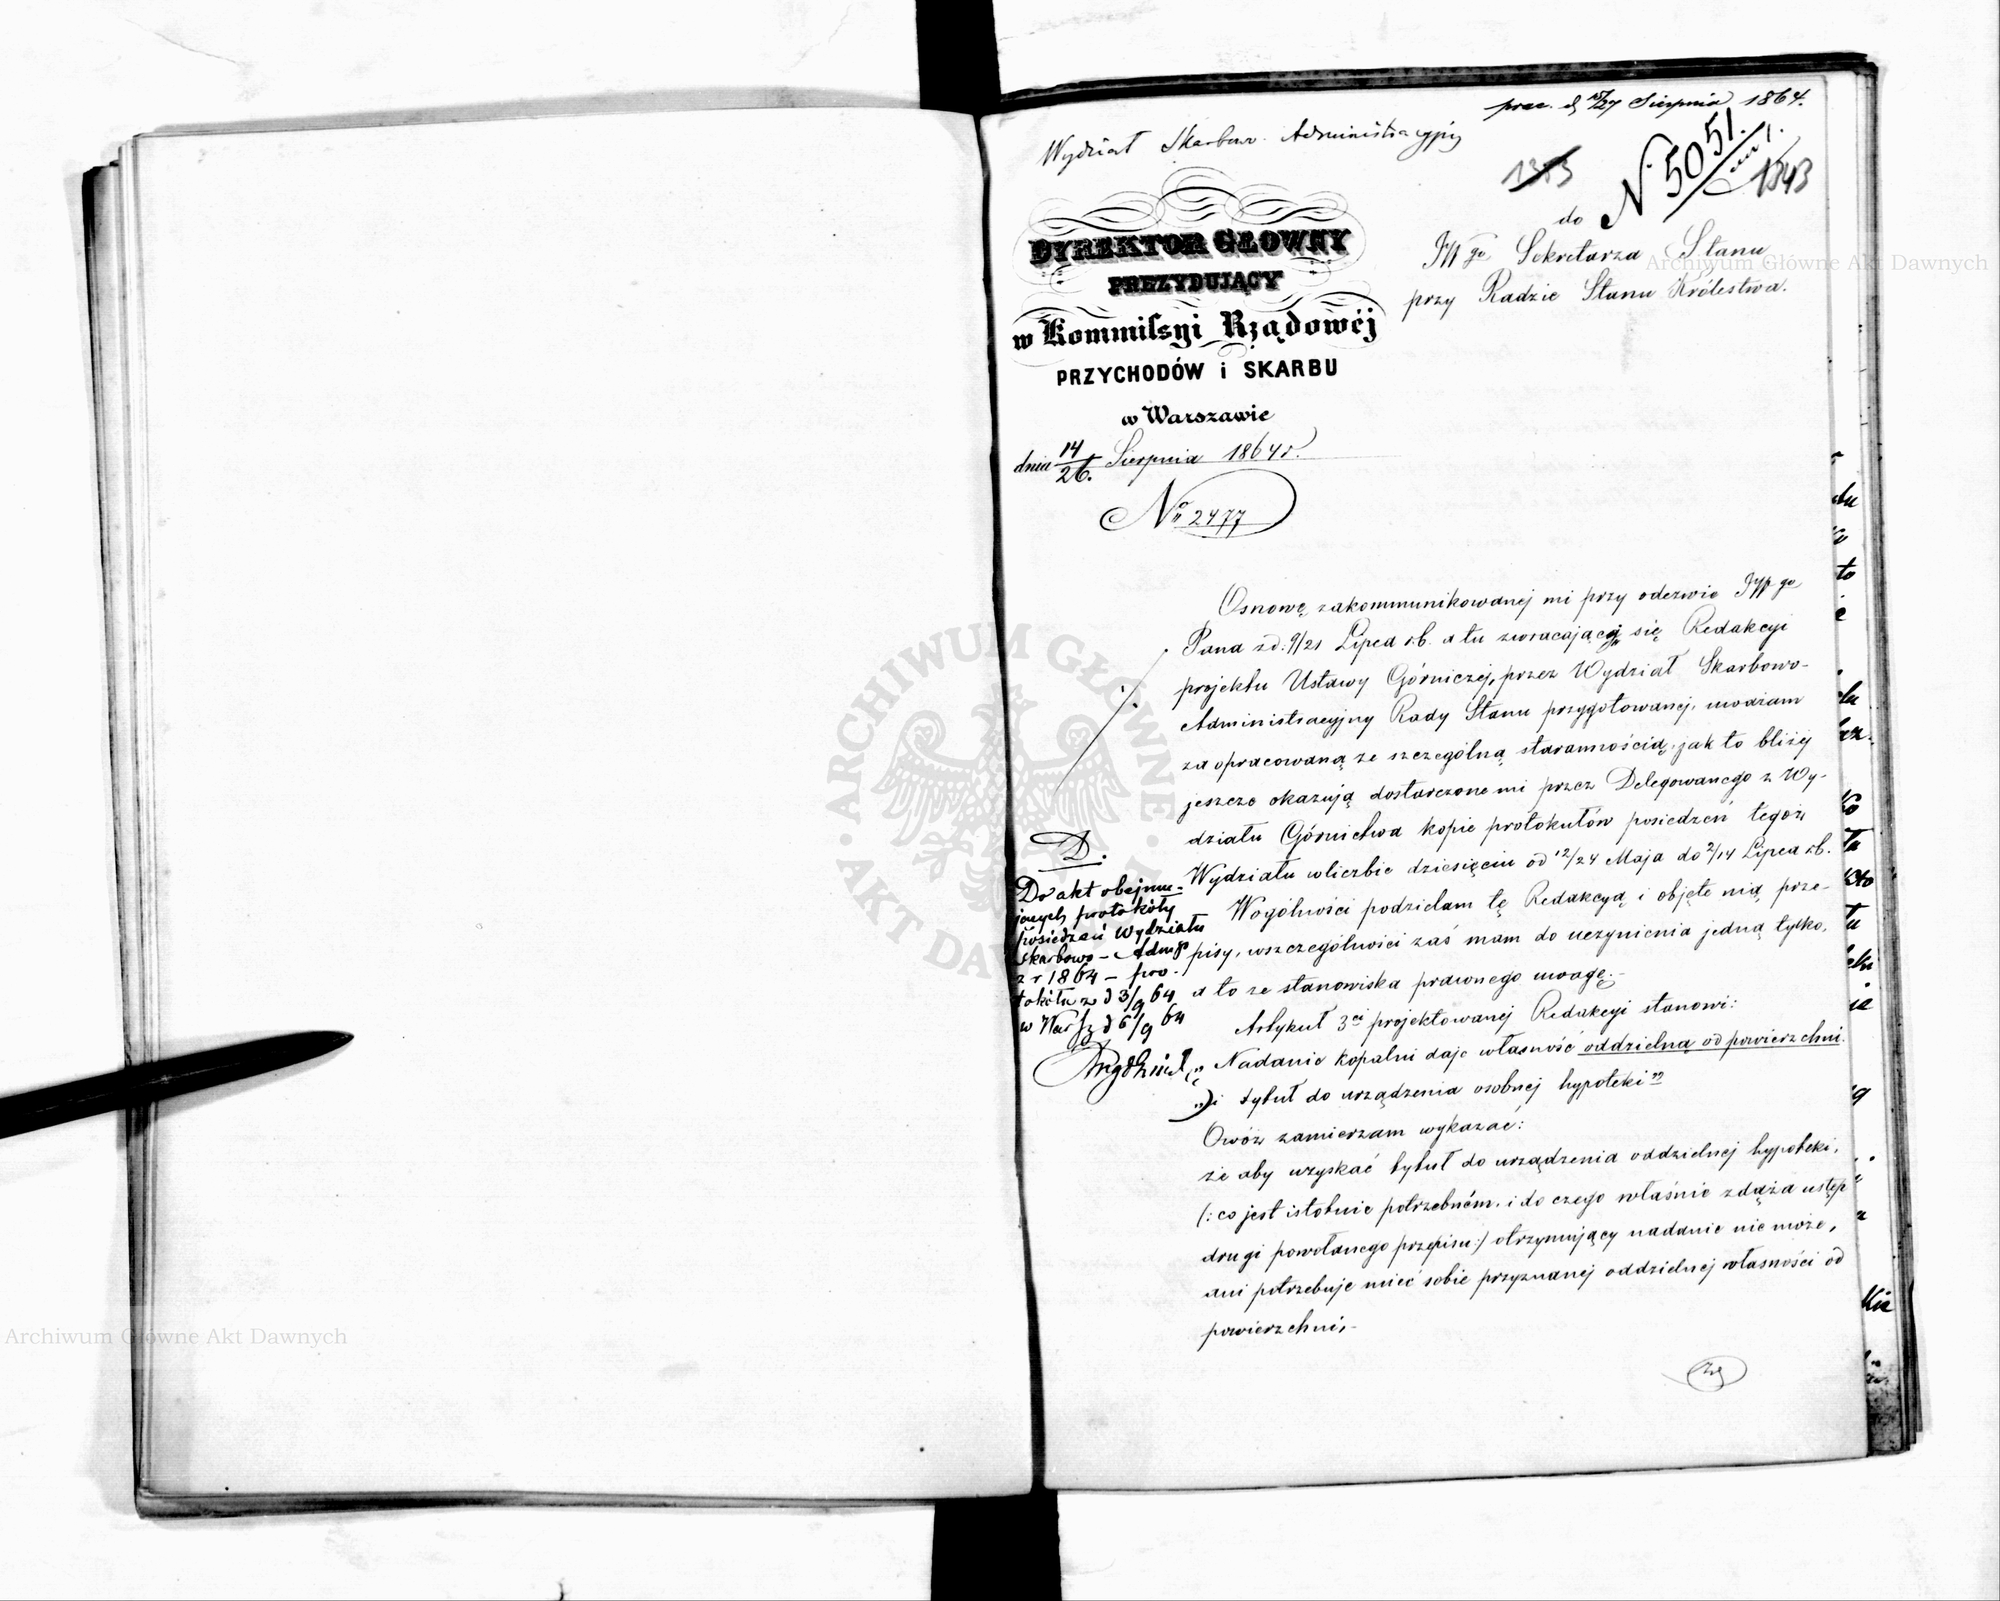 Wydział Skarbow. Administracyjny
prez. d 15/27 Sierpnia 1864.
N. 5051.
1343
do
JW go Sekretarza Stanu
przy Radzie Stanu Królestwa.
DYREKTOR GŁÓWNY
PREZYDUJĄCY
w Kommiſsyi Rządowéj
PRZYCHODÓW i SKARBU
w Warszawie
dnia 14/26. Sierpnia 1864 r.
No 2477
Osnowę zakommunikowanej mi przy odezwie JW go
Pana z d. 9/21 Lipca r.b. a tu zwracającej się Redakcyi
projektu Ustawy Górniczej, przez Wydział Skarbowo-
Administracyjny Rady Stanu przygotowanej, uważam
za opracowaną ze szczególną starannością, jak to bliżej
jeszcze okazują dostarczone mi przez Delegowanego z Wy-
działu Górnictwa kopie protokułów posiedzeń tegoż
Wydziału w liczbie dziesięciu od 12/24 Maja do 2/14 Lipca r.b.
Wogólności podzielam tę Redakcyą i objęte nią prze-
pisy, wszczególności zaś mam do uczynienia jedną tylko,
a to ze stanowiska prawnego uwagę.-
Artykuł 3ci projektowanej Redakcyi stanowi:
„Nadanie kopalni daje własność oddzielną od powierzchni
„i tytuł do urządzenia osobnej hypoteki”
Owóż zamierzam wykazać:
że aby uzyskać tytuł do urządzenia oddzielnej hypoteki,
(: co jest istotnie potrzebném, i do czego właśnie zdąża ustęp
drugi powołanego przepisu :) otrzymujący nadanie nie może,
ani potrzebuje mieć sobie przyznanej oddzielnej własności od
powierzchni,-
D.
Do akt obejmu-
jących protokóły
posiedzeń Wydziału
Skarbowo-Admgo
z r 1864 - pro-
tokółu z d 3/9 64
w Warsz d 6/9 64
ARCHIWUM GŁÓWNE AKT DAWNYCH
Archiwum Główne Akt Dawnych
Archiwum Główne Akt Dawnych